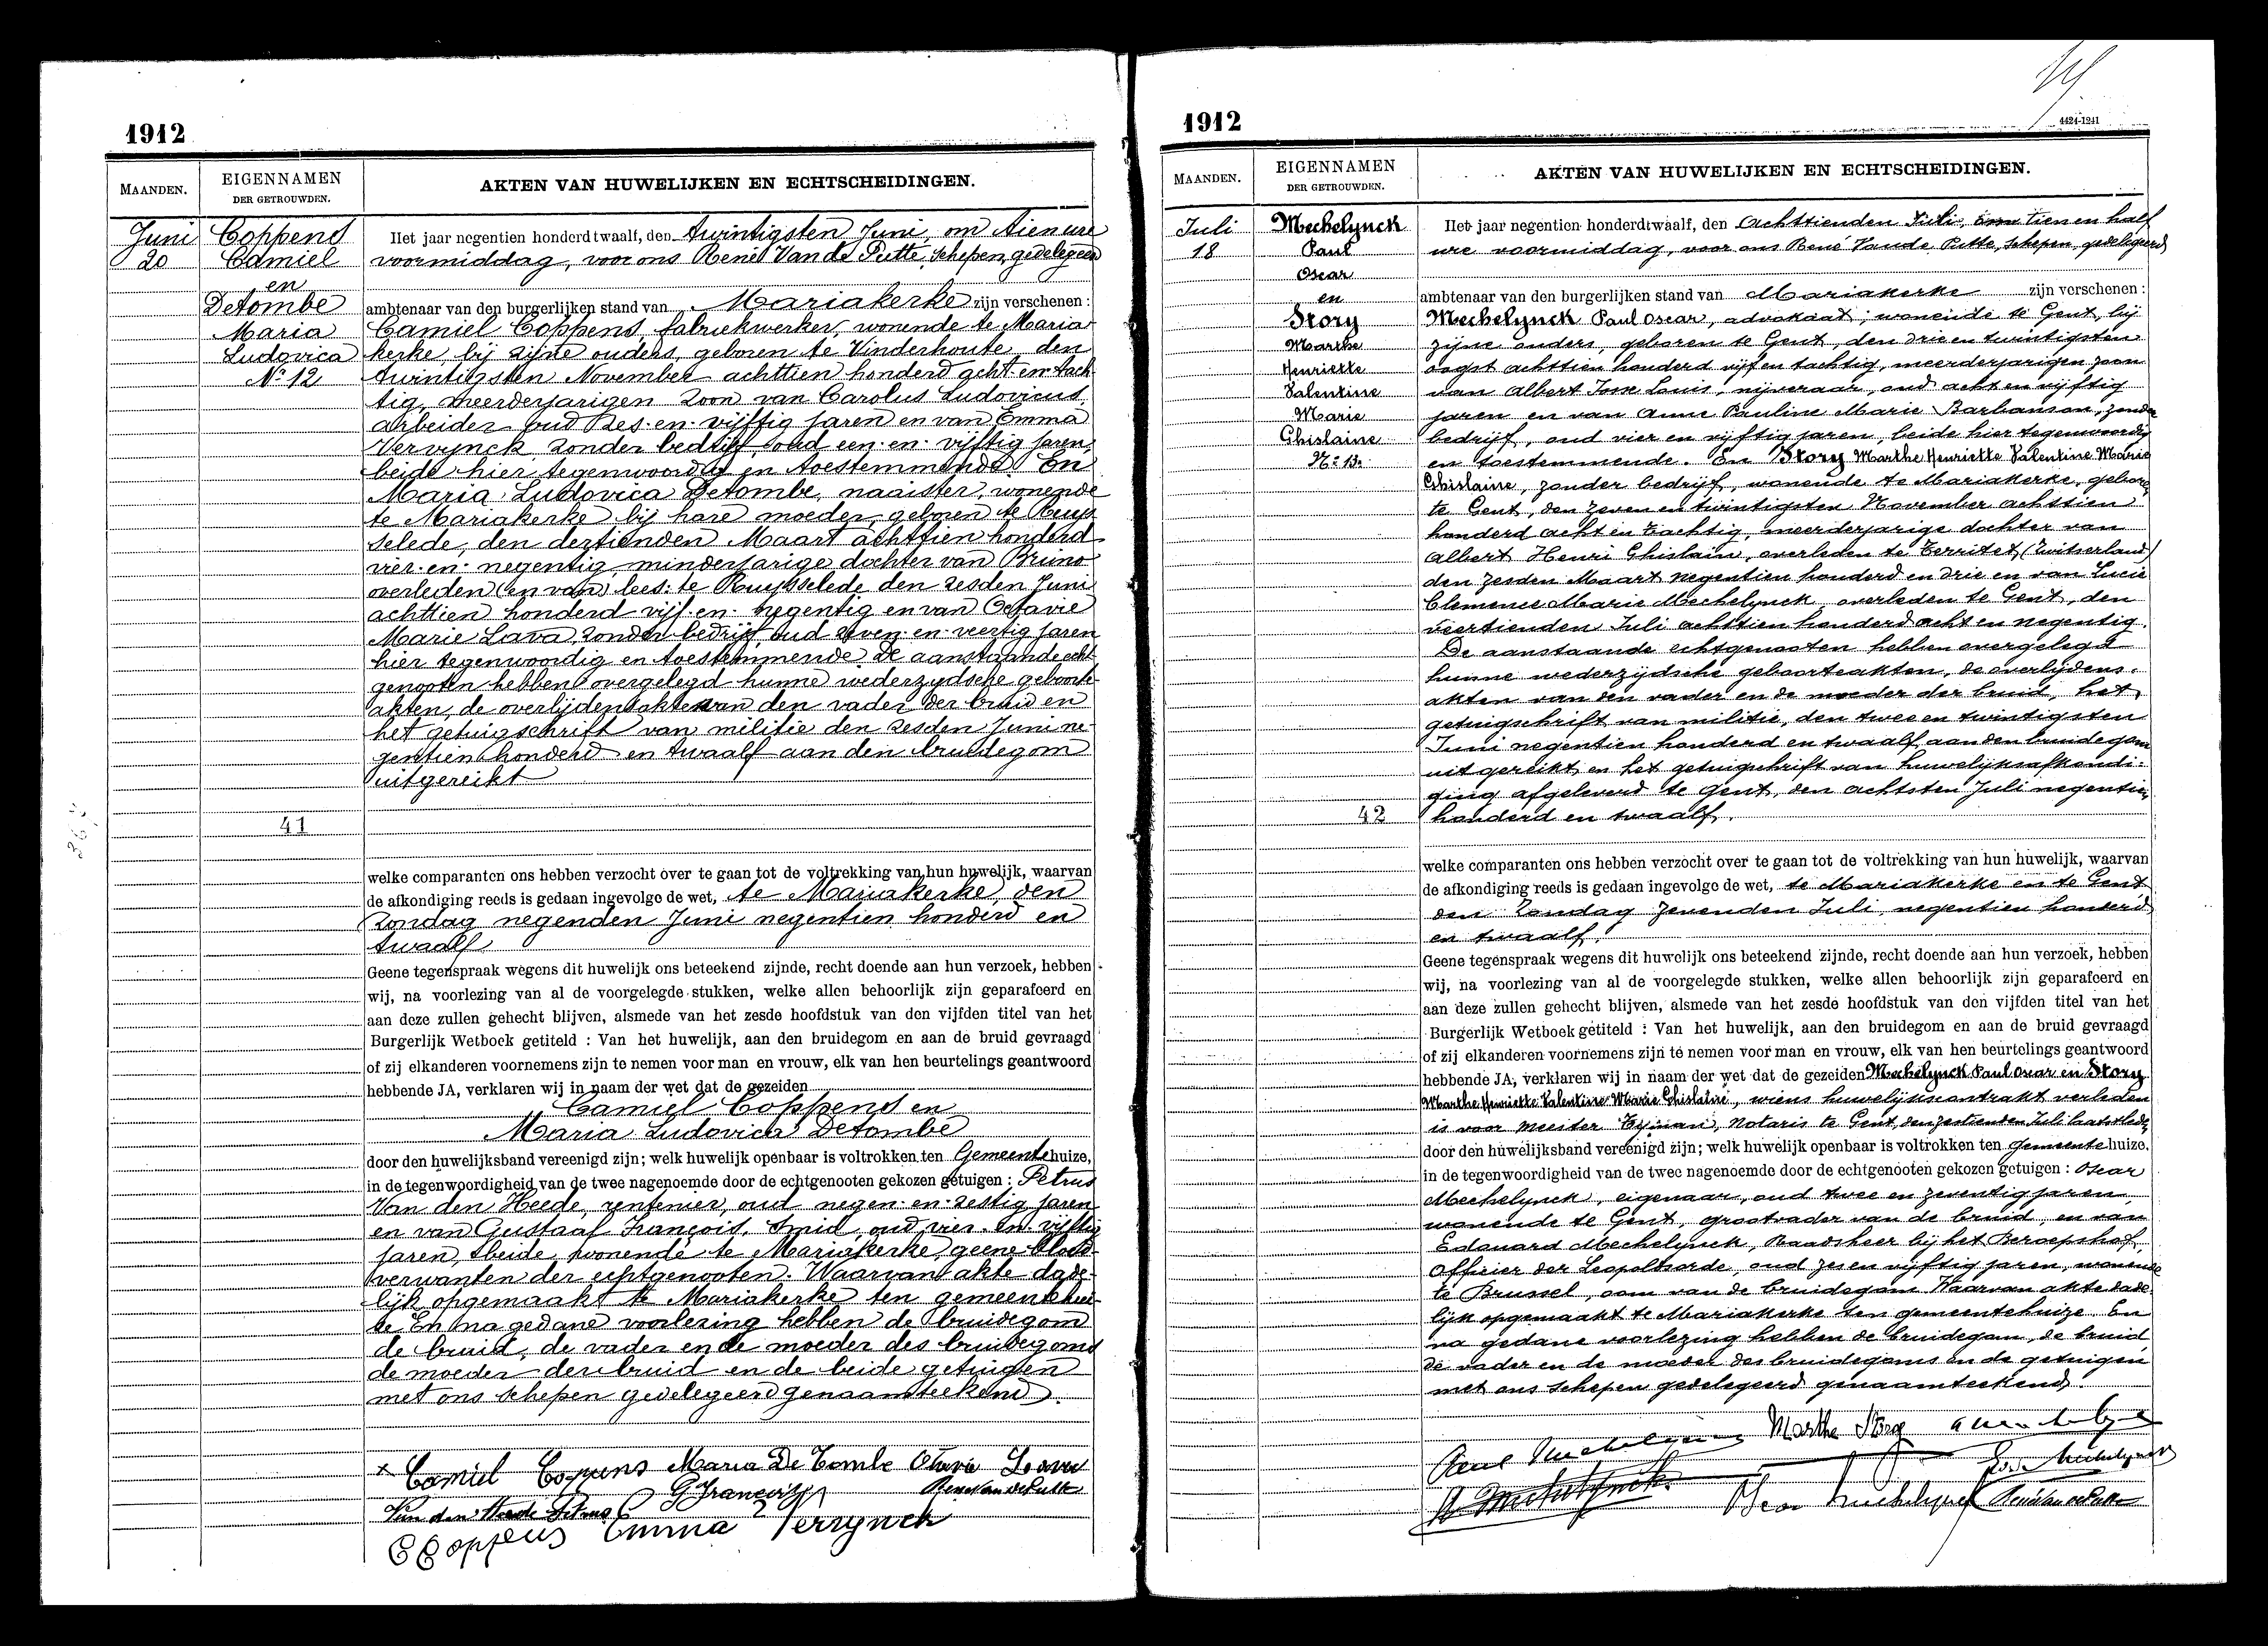 1912
MAANDEN.
EIGENNAMEN
DER GETROUWDEN.
AKTEN VAN HUWELIJKEN EN ECHTSCHEIDINGEN.
Juni
20
Coppens
Camiel
en
Detombe
Maria
Ludovica
No 12
41
Het jaar negentien honderd twaalf, den twintigsten Juni, om tien ure
voormiddag, voor ons René Van de Putte, schepen, gedelegeerd
ambtenaar van den burgerlijken stand van Mariakerke zijn verschenen :
Camiel Coppens, fabriekwerker, wonende te Maria
kerke bij zijne ouders, geboren te Vinderhoute, den
twintigsten November achttien honderd acht en tach
tig, meerderjarigen zoon van Carolus Ludovicus,
arbeider oud zes en vijftig jaren en van Emma
Vervynck, zonder bedrijf, oud een en vijftig jaren,
beide hier tegenwoordig en toestemmende. En
Maria Ludovica Detombe, naaister, wonende
te Mariakerke bij hare moeder, geboren te Ruys
selede, den dertienden Maart achttien honderd
vier en negentig, minderjarige dochter van Bruno
overleden (en van) lees: te Ruysselede den zesden Juni
achttien honderd vijf en negentig en van Octavie
Marie Lava, zonder bedrijf, oud zeven en veertig jaren
hier tegenwoordig en toestemmende. De aanstaande echt
genooten hebben overgelegd hunne wederzydsche geboorte
akten, de overlijdensakte van den vader der bruid en
het getuigschrift van militie den zesden Juni ne
gentien honderd en twaalf aan den bruidegom
uitgereikt
welke comparanten ons hebben verzocht over te gaan tot de voltrekking van hun huwelijk, waarvan
de afkondiging reeds is gedaan ingevolge de wet, te Mariakerke, den
Zondag negenden Juni negentien honderd en
twaalf
Geene tegenspraak wegens dit huwelijk ons beteekend zijnde, recht doende aan hun verzoek, hebben
wij, na voorlezing van al de voorgelegde stukken, welke allen behoorlijk zijn geparafeerd en
aan deze zullen gehecht blijven, alsmede van het zesde hoofdstuk van den vijfden titel van het
Burgerlijk Wetboek getiteld : Van het huwelijk, aan den bruidegom en aan de bruid gevraagd
of zij elkanderen voornemens zijn te nemen voor man en vrouw, elk van hen beurtelings geantwoord
hebbende JA, verklaren wij in naam der wet dat de gezeiden
Camiel Coppens en
Maria Ludovica Detombe
door den huwelijksband vereenigd zijn; welk huwelijk openbaar is voltrokken ten Gemeentehuize,
in de tegenwoordigheid van de twee nagenoemde door de echtgenooten gekozen getuigen : Petrus
Van den Heede, rentenier, oud negen en zestig jaren
en van Gustaaf François, smid, oud vier en vijftig
jaren, beide wonende te Mariakerke, geene bloed
verwanten der echtgenooten. Waarvan akte dade
lijk opgemaakt te Mariakerke ten gemeentehui
ze En na gedane voorlezing hebben de bruidegom
de bruid, de vader en de moeder des bruidegoms
de moeder der bruid en de beide getuigen
met ons schepen gedelegeerd genaamteekend.
x Camiel Coppens Maria De Tombe Otavie Lava
G François René Van de Putte
Van den Heede Petrus
C Coppens Emma Verrynck
1912
4424-1241
MAANDEN.
EIGENNAMEN
DER GETROUWDEN.
AKTEN VAN HUWELIJKEN EN ECHTSCHEIDINGEN.
Juli
18
Mechelynck
Paul
Oscar
en
Story
Marthe
Henriette
Valentine
Marie
Ghislaine
No 13.
42
Het jaar negentien honderd twaalf, den achttienden Juli, tien en half
ure voormiddag, voor ons René Vande Putte, schepen, gedelegeerd
ambtenaar van den burgerlijken stand van Mariakerke zijn verschenen :
Mechelynck Paul Oscar, advokaat, wonende te Gent, bij
zijne ouders, geboren te Gent, den drie en twintigsten
oogst achttien honderd vijf en tachtig, meerderjarigen zoon
van Albert Jean Louis, nijveraar, oud acht en vijftig
jaren en van Anne Pauline Marie Barbanson, zonder
bedrijf, oud vier en vijftig jaren, beide hier tegenwoordig
en toestemmende. En Story Marthe Henriette Valentine Marie
Ghislaine, zonder bedrijf, wonende te Mariakerke, geboren
te Gent, den zeven en twintigsten November achttien
honderd acht en tachtig, meerderjarige dochter van
Albert Henri Ghislain, overleden te Territet, (Zwitserland)
den zesden Maart negentien honderd en drie en van Lucie
Clemence Marie Mechelynck overleden te Gent, den
veertienden Juli achttien honderd acht en negentig.
De aanstaande echtgenooten hebben overgelegd
hunne wederzydsche geboorteakten, de overlydens-
akten van den vader en de moeder der bruid, het
getuigschrift van militie, den twee en twintigsten
Juni negentien honderd en twaalf aan den bruidegom
uitgereikt, en het getuigschrift van huwelijksafkondi-
ging afgeleverd te Gent, den achtsten Juli negentien
honderd en twaalf.
welke comparanten ons hebben verzocht over te gaan tot de voltrekking van hun huwelijk, waarvan
de afkondiging reeds is gedaan ingevolge de wet, te Mariakerke en te Gent
den Zondag zevenden Juli, negentien honderd
en twaalf.
Geene tegenspraak wegens dit huwelijk ons beteekend zijnde, recht doende aan hun verzoek, hebben
wij, na voorlezing van al de voorgelegde stukken, welke allen behoorlijk zijn geparafeerd en
aan deze zullen gehecht blijven, alsmede van het zesde hoofdstuk van den vijfden titel van het
Burgerlijk Wetboek getiteld : Van het huwelijk, aan den bruidegom en aan de bruid gevraagd
of zij elkanderen voornemens zijn te nemen voor man en vrouw, elk van hen beurtelings geantwoord
hebbende JA, verklaren wij in naam der wet dat de gezeiden Mechelynck Paul Oscar en Story
Marthe Henriette Valentine Marie Ghislaine, wiens huwelijkskontrakt verleden
is voor meester Eyman, Notaris te Gent, den zestienden Juli laatstleden,
door den huwelijksband vereenigd zijn; welk huwelijk openbaar is voltrokken ten gemeentehuize,
in de tegenwoordigheid van de twee nagenoemde door de echtgenooten gekozen getuigen : Oscar
Mechelynck, eigenaar, oud twee en zeventig jaren,
wonende te Gent, grootvader van de bruid, en van
Edouard Mechelynck, Raadsheer bij het Beroepshof,
Officier der Leopoldsorde, oud zes en vijftig jaren, wonende
te Brussel, oom van de bruidegom. Waarvan akte dade
lijk opgemaakt te Mariakerke ten gemeentehuize. En
na gedane voorlezing hebben de bruidegom, de bruid
de vader en de moeder des bruidegoms en de getuigen
met ons schepen gedelegeerd genaamteekend.
Paul Mechelynck Marthe Story
Mechelynck
Mechelynck Oscar Mechelynck René Van de Putte